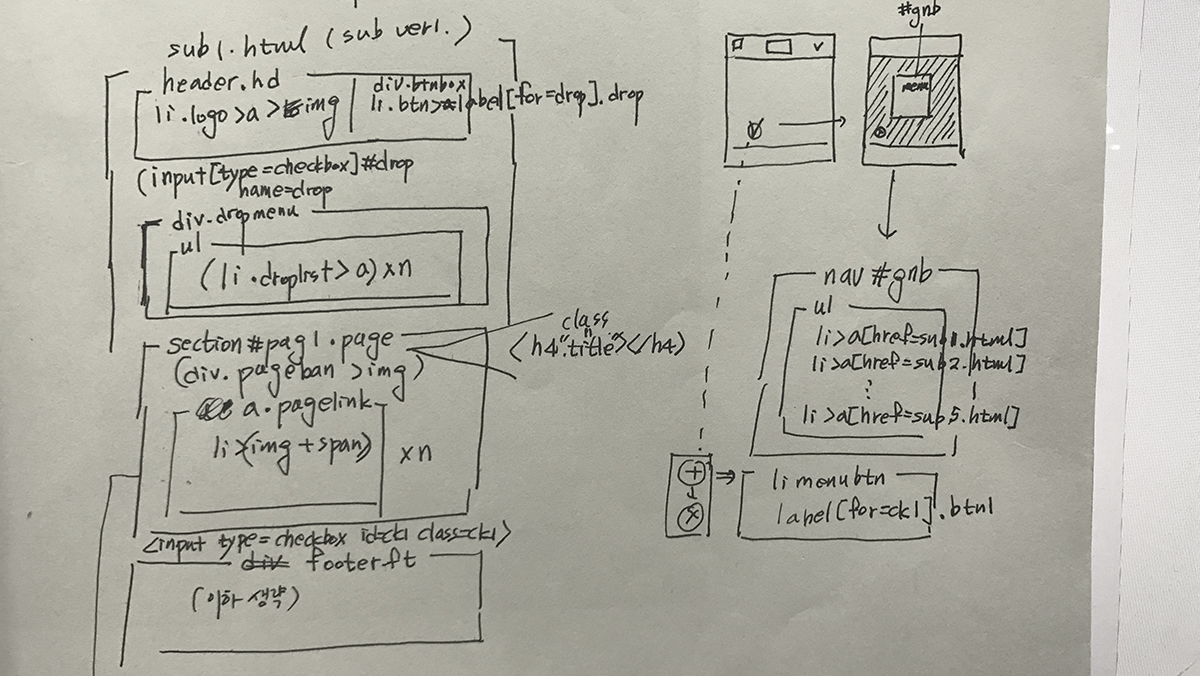 sub1.html (sub ver1.)
header.hd
li.logo>a>img
div.btnbox
li.btn>label[for=drop].drop
(input[type=checkbox]#drop
name=drop
div.dropmenu
ul
(li.droplist>a)xn
section#pag1.page
(div.pageban>img)
class
<h4"title"></h4>
a.pagelink
li>(img+span)
xn
<input type=checkbox id=ck1 class=ck1>
div footer.ft
(이하 생략)
#gnb
menu
nav #gnb
ul
li>a[href=sub1.html]
li>a[href=sub2.html]
⋮
li>a[href=sub5.html]
li menubtn
label[for=ck1].btn1